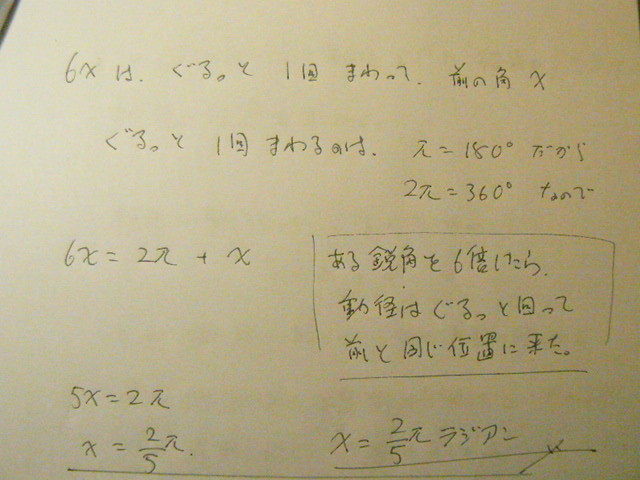 6x は、ぐるっと 1回 まわって、前の角 x
ぐるっと 1回 まわるのは、π=180° だから
2π=360° なので
6x = 2π + x
ある鋭角を6倍したら、
動径はぐるっと回って
前と同じ位置に来た。
5x = 2π
x = 2/5 π.
x = 2/5 π ラジアン